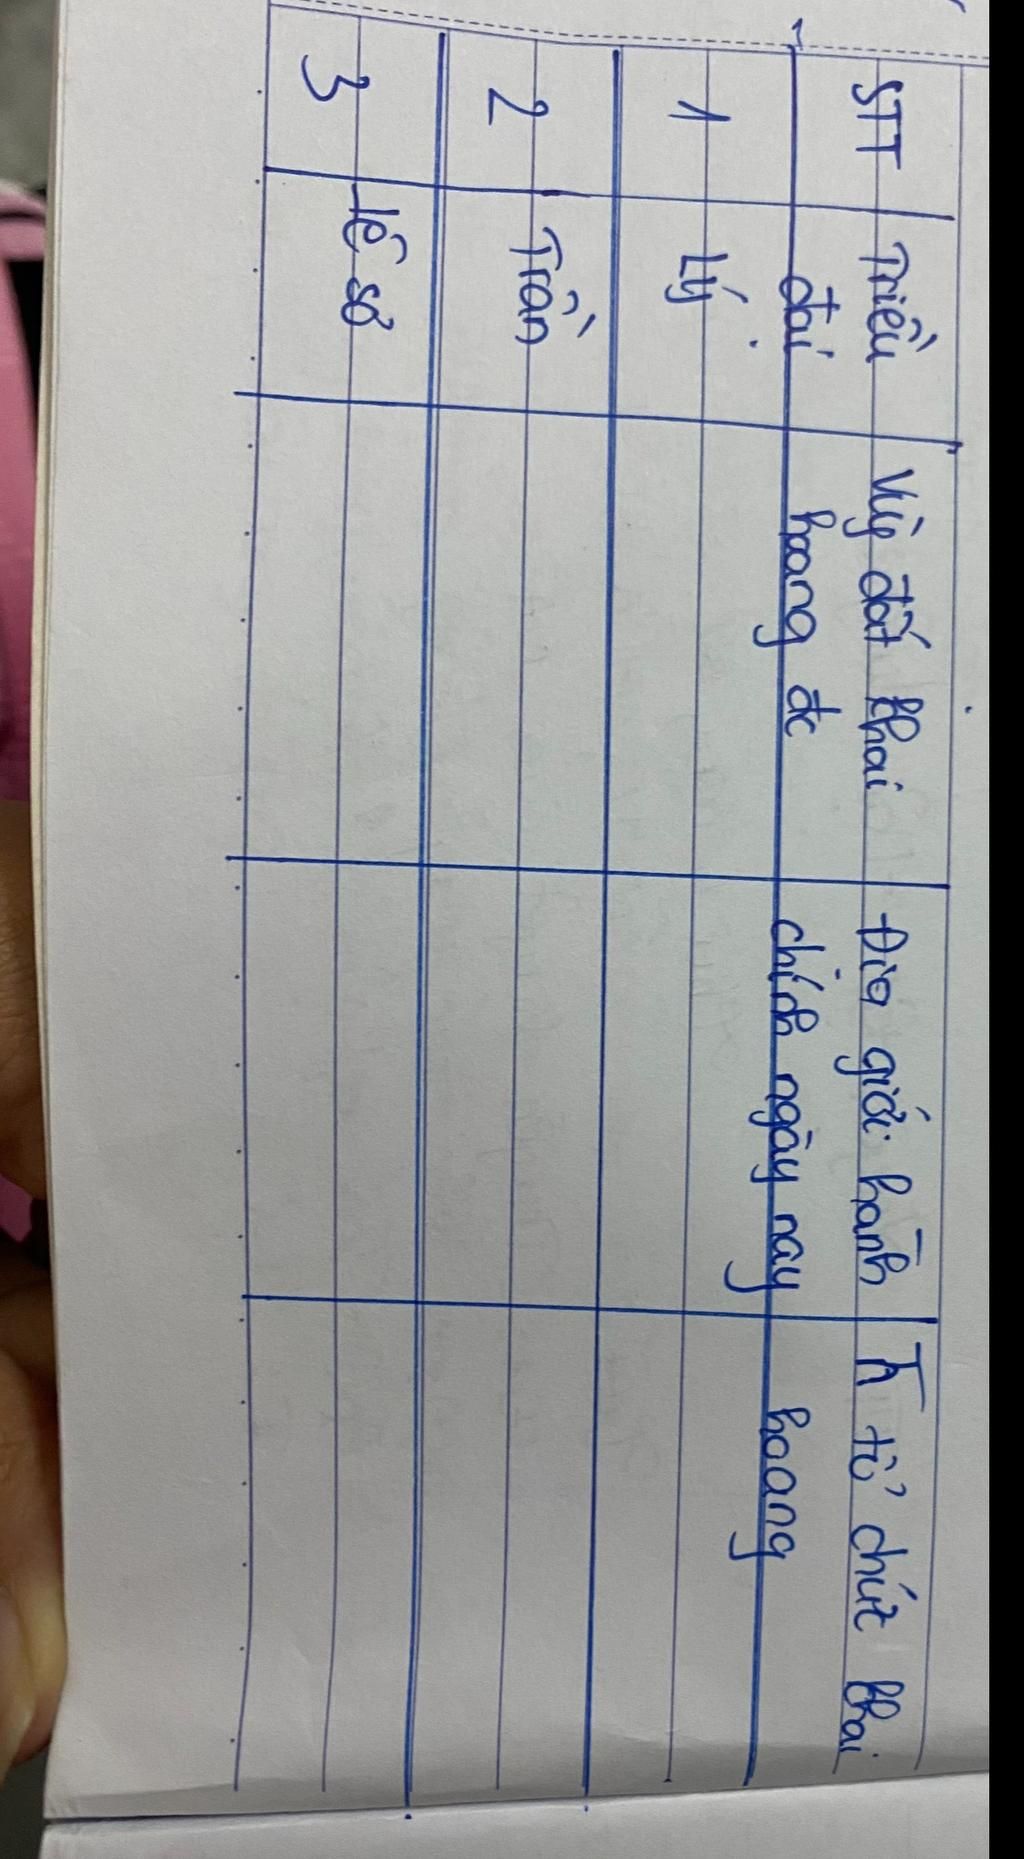 STT Triều Vùg đất khai Địa giới hành T² tổ chức khai
đại hoang đc chính ngày nay hoang
1 Lý
2 Trần
3 Lê sơ